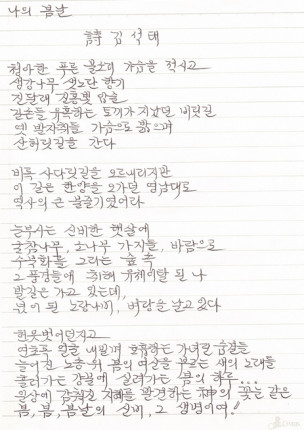 나의 봄날
詩 김석태
청아한 푸른 물소리 가슴을 적시고
생강나무 샛노란 향기
진달래 진홍빛 입술
길손들 유혹하는 토끼가 지났던 비릿길
옛 발자취들 가슴으로 밟으며
산허릿길을 간다
비록 사다릿길을 오르내리지만
이 길은 한양을 오가던 영남대로
역사의 큰 물줄기였어라
눈부시는 신비한 햇살에
굴참나무, 소나무 가지들, 바람으로
수묵화를 그리는 숲 속
그 풍경들에 취해 유체이탈 된 나
발길은 가고 있는데,
넋이 된 노랑나비, 벼랑을 날고 있다
헌옷 벗어던지고
연초록 잎을 내밀며 호흡하는 가녀린 숨결들
늘어진 노송 위 봄의 여상을 부르는 새의 노래들
흘러가는 강물에 실려가는 봄의 하루...
일상에 감춰진 지혜를 발견하는 神의 꽃눈 같은
봄, 봄, 봄날의 신비, 그 생명이여!